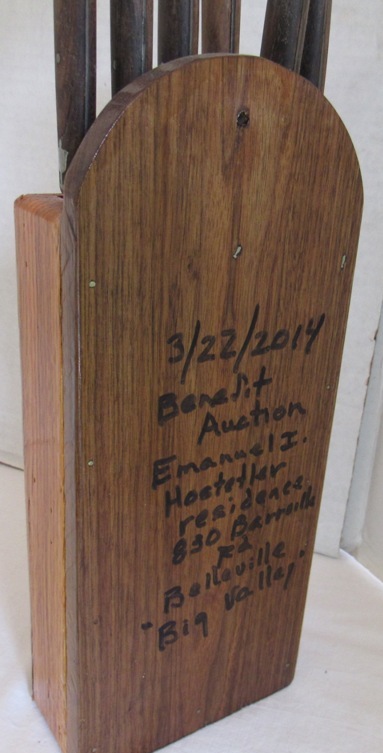 3/22/2014
Benefit
Auction
Emanuel I.
Hostetler
residence
830 Barrville
Rd
Belleville
"Big Valley"